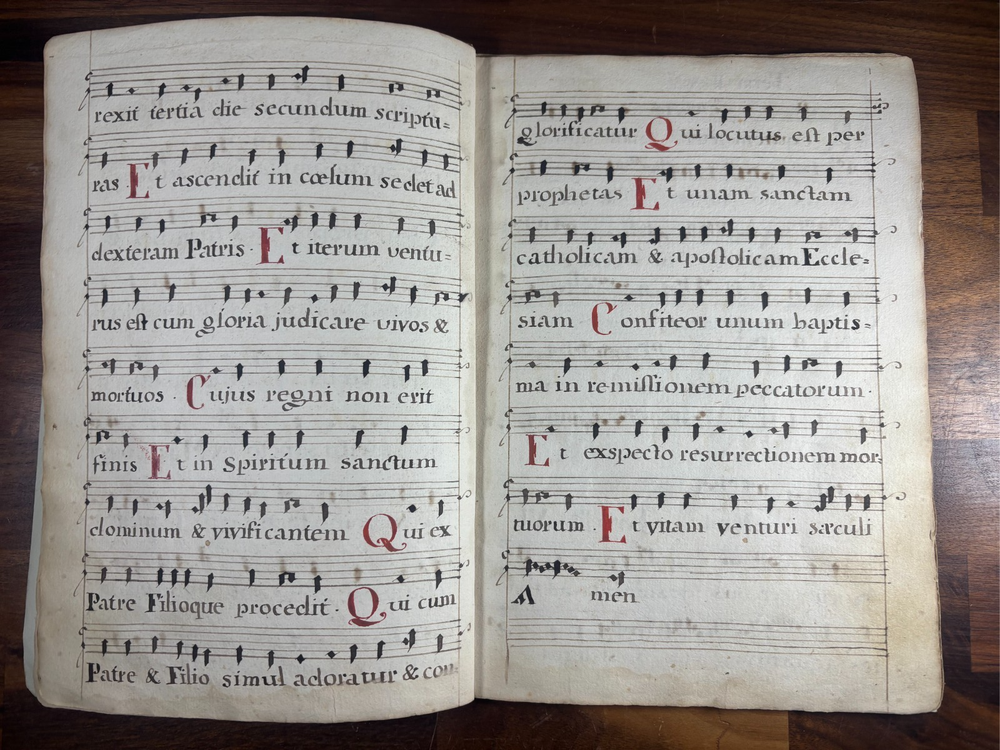 rexit tertia die secundum scriptu=
ras Et ascendit in cœlum sedet ad
dexteram Patris. Et iterum ventu=
rus est cum gloria judicare vivos &
mortuos. Cujus regni non erit
finis Et in Spiritum sanctum
dominum & vivificantem Qui ex
Patre Filioque procedit. Qui cum
Patre & Filio simul adoratur & con=
glorificatur Qui locutus est per
prophetas Et unam sanctam
catholicam & apostolicam Eccle=
siam Confiteor unum baptis=
ma in remissionem peccatorum.
Et exspecto resurrectionem mor=
tuorum. Et vitam venturi sæculi
A men